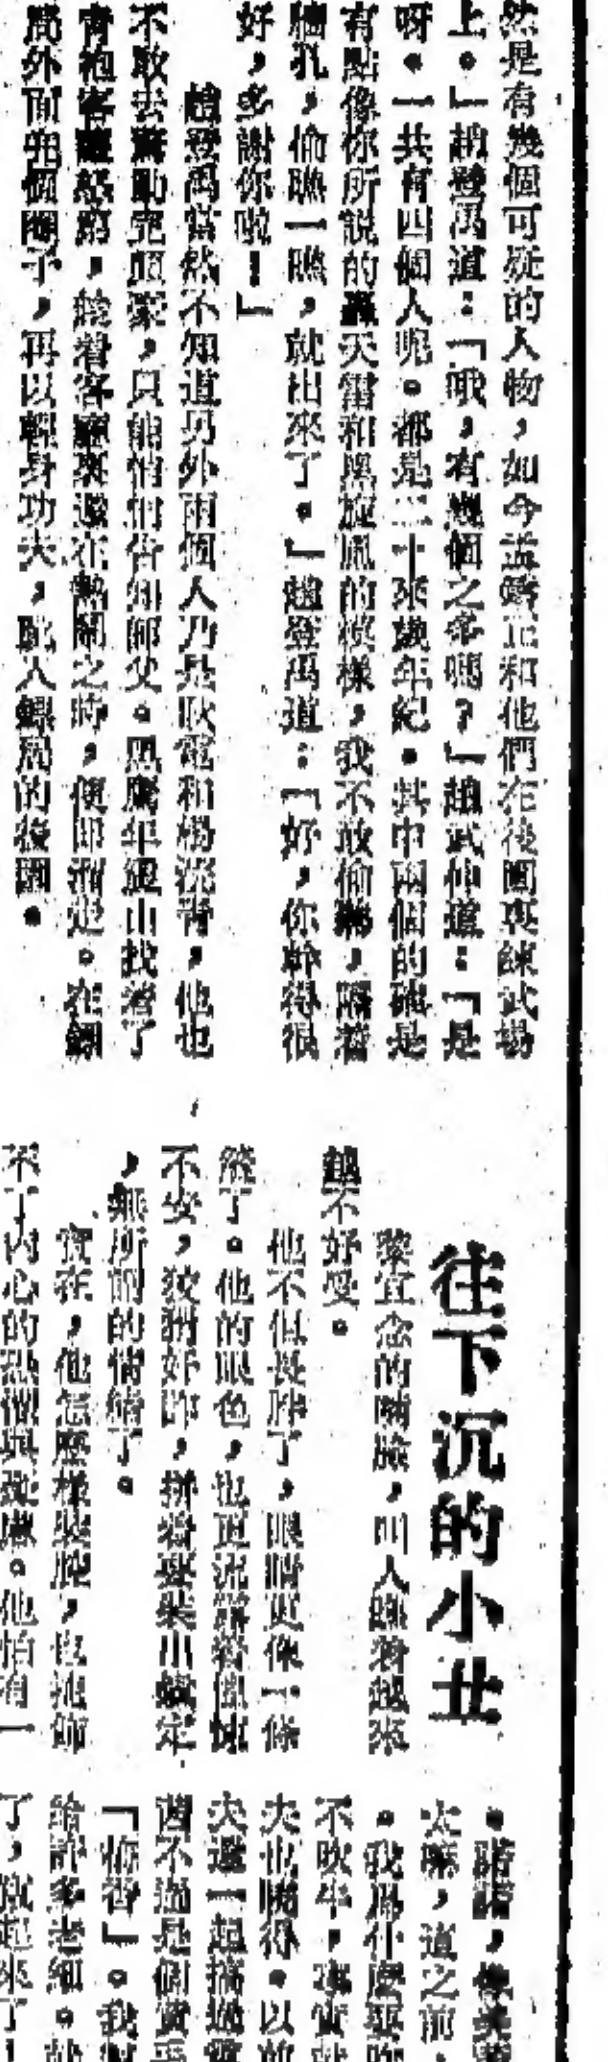 然是有幾個可疑的人物，如今孟鑄正和他們在後園裏練武場
上。」趙登禹道：「哦，有幾個之多嗎？」趙武仲道：「是
呀。一共有四個人呢。都是二十來歲年紀。其中兩個的確是
有點像你所說的轟天雷和黑旋風的模樣，我不敢偷聽，隔着
牆孔，偷瞧一瞧，就出來了。」趙登禹道：「好，你幹得很
好，多謝你啦！」
趙登禹當然不知道另外兩個人乃是耿電和楊浣青，他也
不敢去驚動完顏豪，只能悄悄告知師父。黑鷹年震山找着了
青袍客，趁着客廳裏還在熱鬧之時，便即溜走。在鏢
局外面兜個圈子，再以輕身功夫，跳入鏢局的後園。
往下沉的小丑
黎宜念的嘴臉，叫人瞧着越來
越不好受。
他不但長胖了，眼睛更像一條
縫了。他的眼色，也更流露着
不安，狡猾奸詐，拼着要裝出鎮定
，無所謂的情緒了。
實在，他怎麼樣裝腔，也掩飾
不了內心的恐懼與疑慮。他怕有一
太嘛，道之前，
。我為什麼要
不吹牛，事實
夫也騙得。以前
夫還一起搞過
茜不過是個賣
「梅香」。我
給許多老細。
了，就起來了